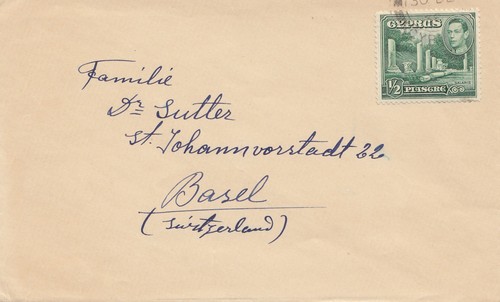 30 DE
CYPRUS
SALAMIS
1/2 PIASTRE
Familie
Dr Sutter
St. Johannvorstadt 22
Basel
(Switzerland)